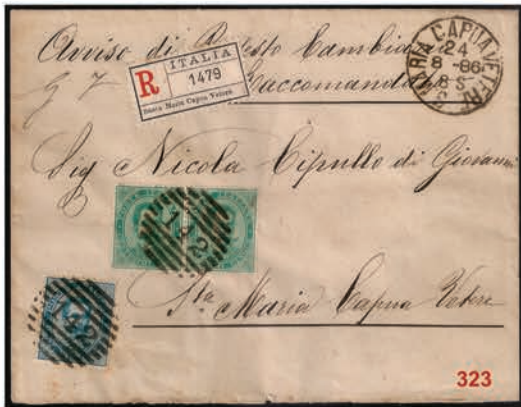 Avviso di Protesto Cambiario
Raccomandata
R
ITALIA
1479
Santa Maria Capua Vetere
S. MARIA CAPUA VETERE
24
8 -86
8 S
Sig Nicola Cipullo di Giovanni
Sta Maria Capua Vetere
323